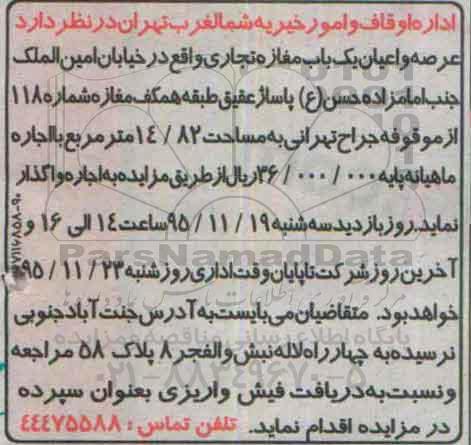 اداره اوقاف و امور خیریه شمالغرب تهران در نظر دارد
عرصه و اعیان یک باب مغازه تجاری واقع در خیابان امین الملک
جنب امامزاده حسن (ع) پاساژ عقیق طبقه همکف مغازه شماره ۱۱۸
از موقوفه جراح تهرانی به مساحت ۸۲ / ۱۴ متر مربع با اجاره
ماهیانه پایه ۰۰۰ / ۰۰۰ / ۳۶ ریال از طریق مزایده به اجاره واگذار
نماید. روز بازدید سه شنبه ۱۹ / ۱۱ / ۹۵ ساعت ۱۴ الی ۱۶ و
آخرین روز شرکت تا پایان وقت اداری روز شنبه ۲۳ / ۱۱ / ۹۵
خواهد بود. متقاضیان می بایست به آدرس جنت آباد جنوبی
نرسیده به چهارراه لاله نبش والفجر ۸ پلاک ۵۸ مراجعه
و نسبت به دریافت فیش واریزی بعنوان سپرده
در مزایده اقدام نماید. تلفن تماس : ۴۴۴۷۵۵۸۸
ParsNamadData
پایگاه اطلاع رسانی مناقصه و مزایده
۰۲۱-۸۸۳۴۹۶۷۰-۵